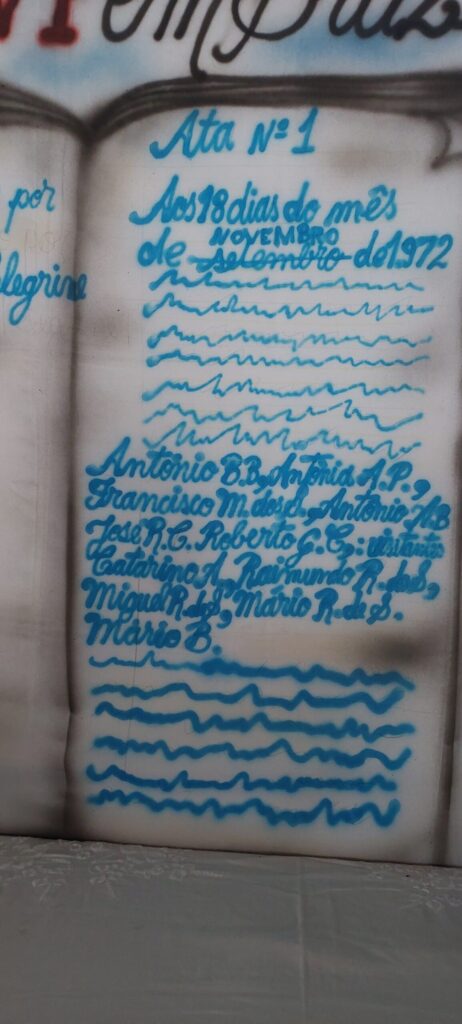 em
Ata Nº 1
por
Aos 18 dias do mês
NOVEMBRO
de setembro do 1972
Antônio B.B, Antônia A.P.,
Francisco M. dos S., Antônio A.B
José R.C. Roberto G.C,: visitantes
Catarino A., Raimundo R. da S,
Miguel R. da S, Mário R. de S.
Mário B.